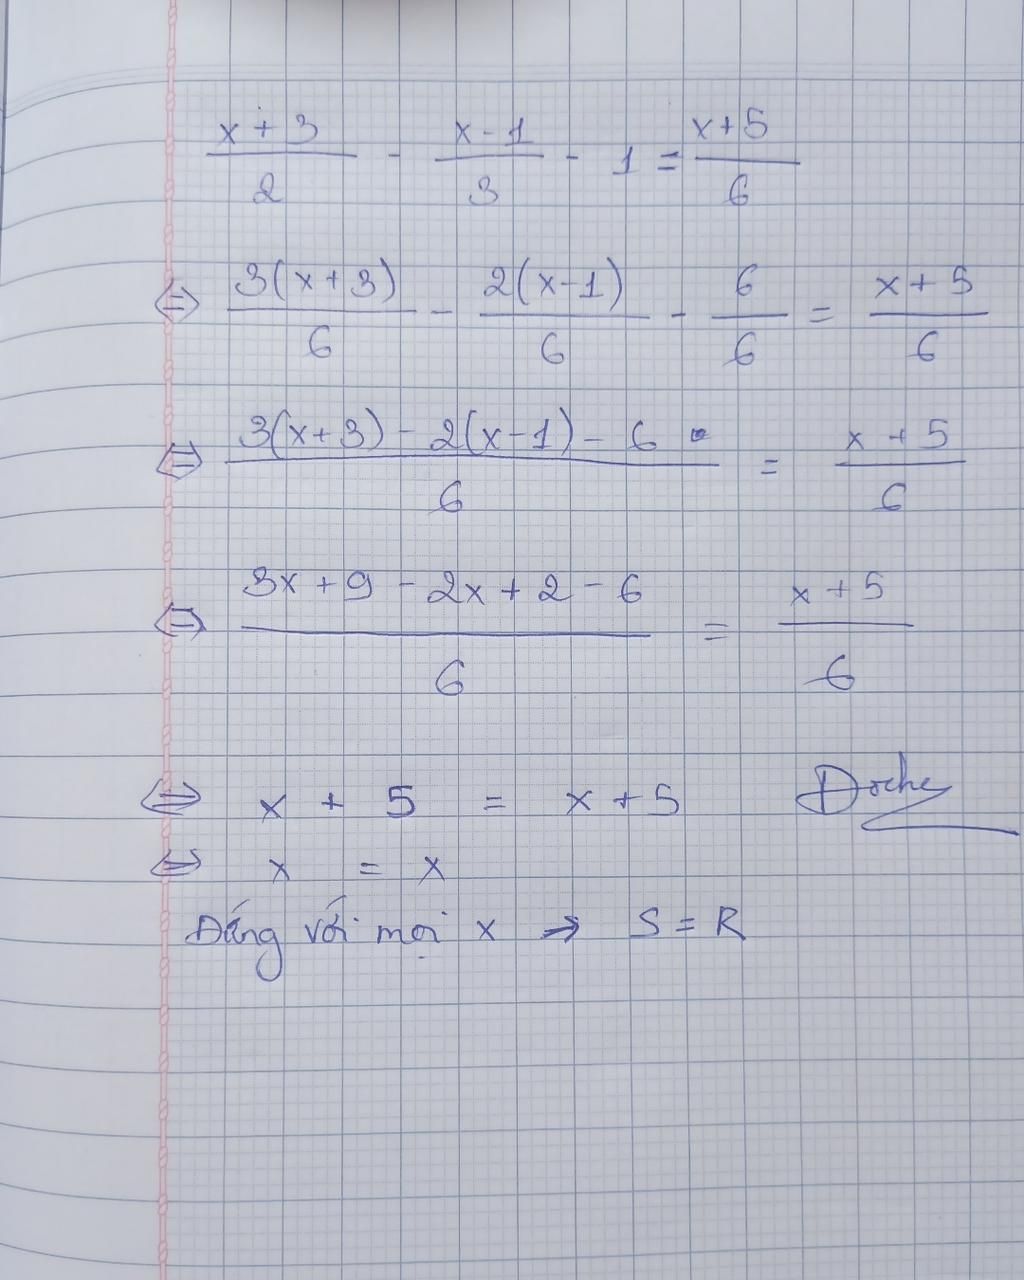 x + 3 / 2 - x - 1 / 3 - 1 = x + 5 / 6
⇔ 3(x + 3) / 6 - 2(x - 1) / 6 - 6 / 6 = x + 5 / 6
⇔ 3(x + 3) - 2(x - 1) - 6 / 6 = x + 5 / 6
⇔ 3x + 9 - 2x + 2 - 6 / 6 = x + 5 / 6
⇔ x + 5 = x + 5
⇔ x = x
Đúng với mọi x → S = R